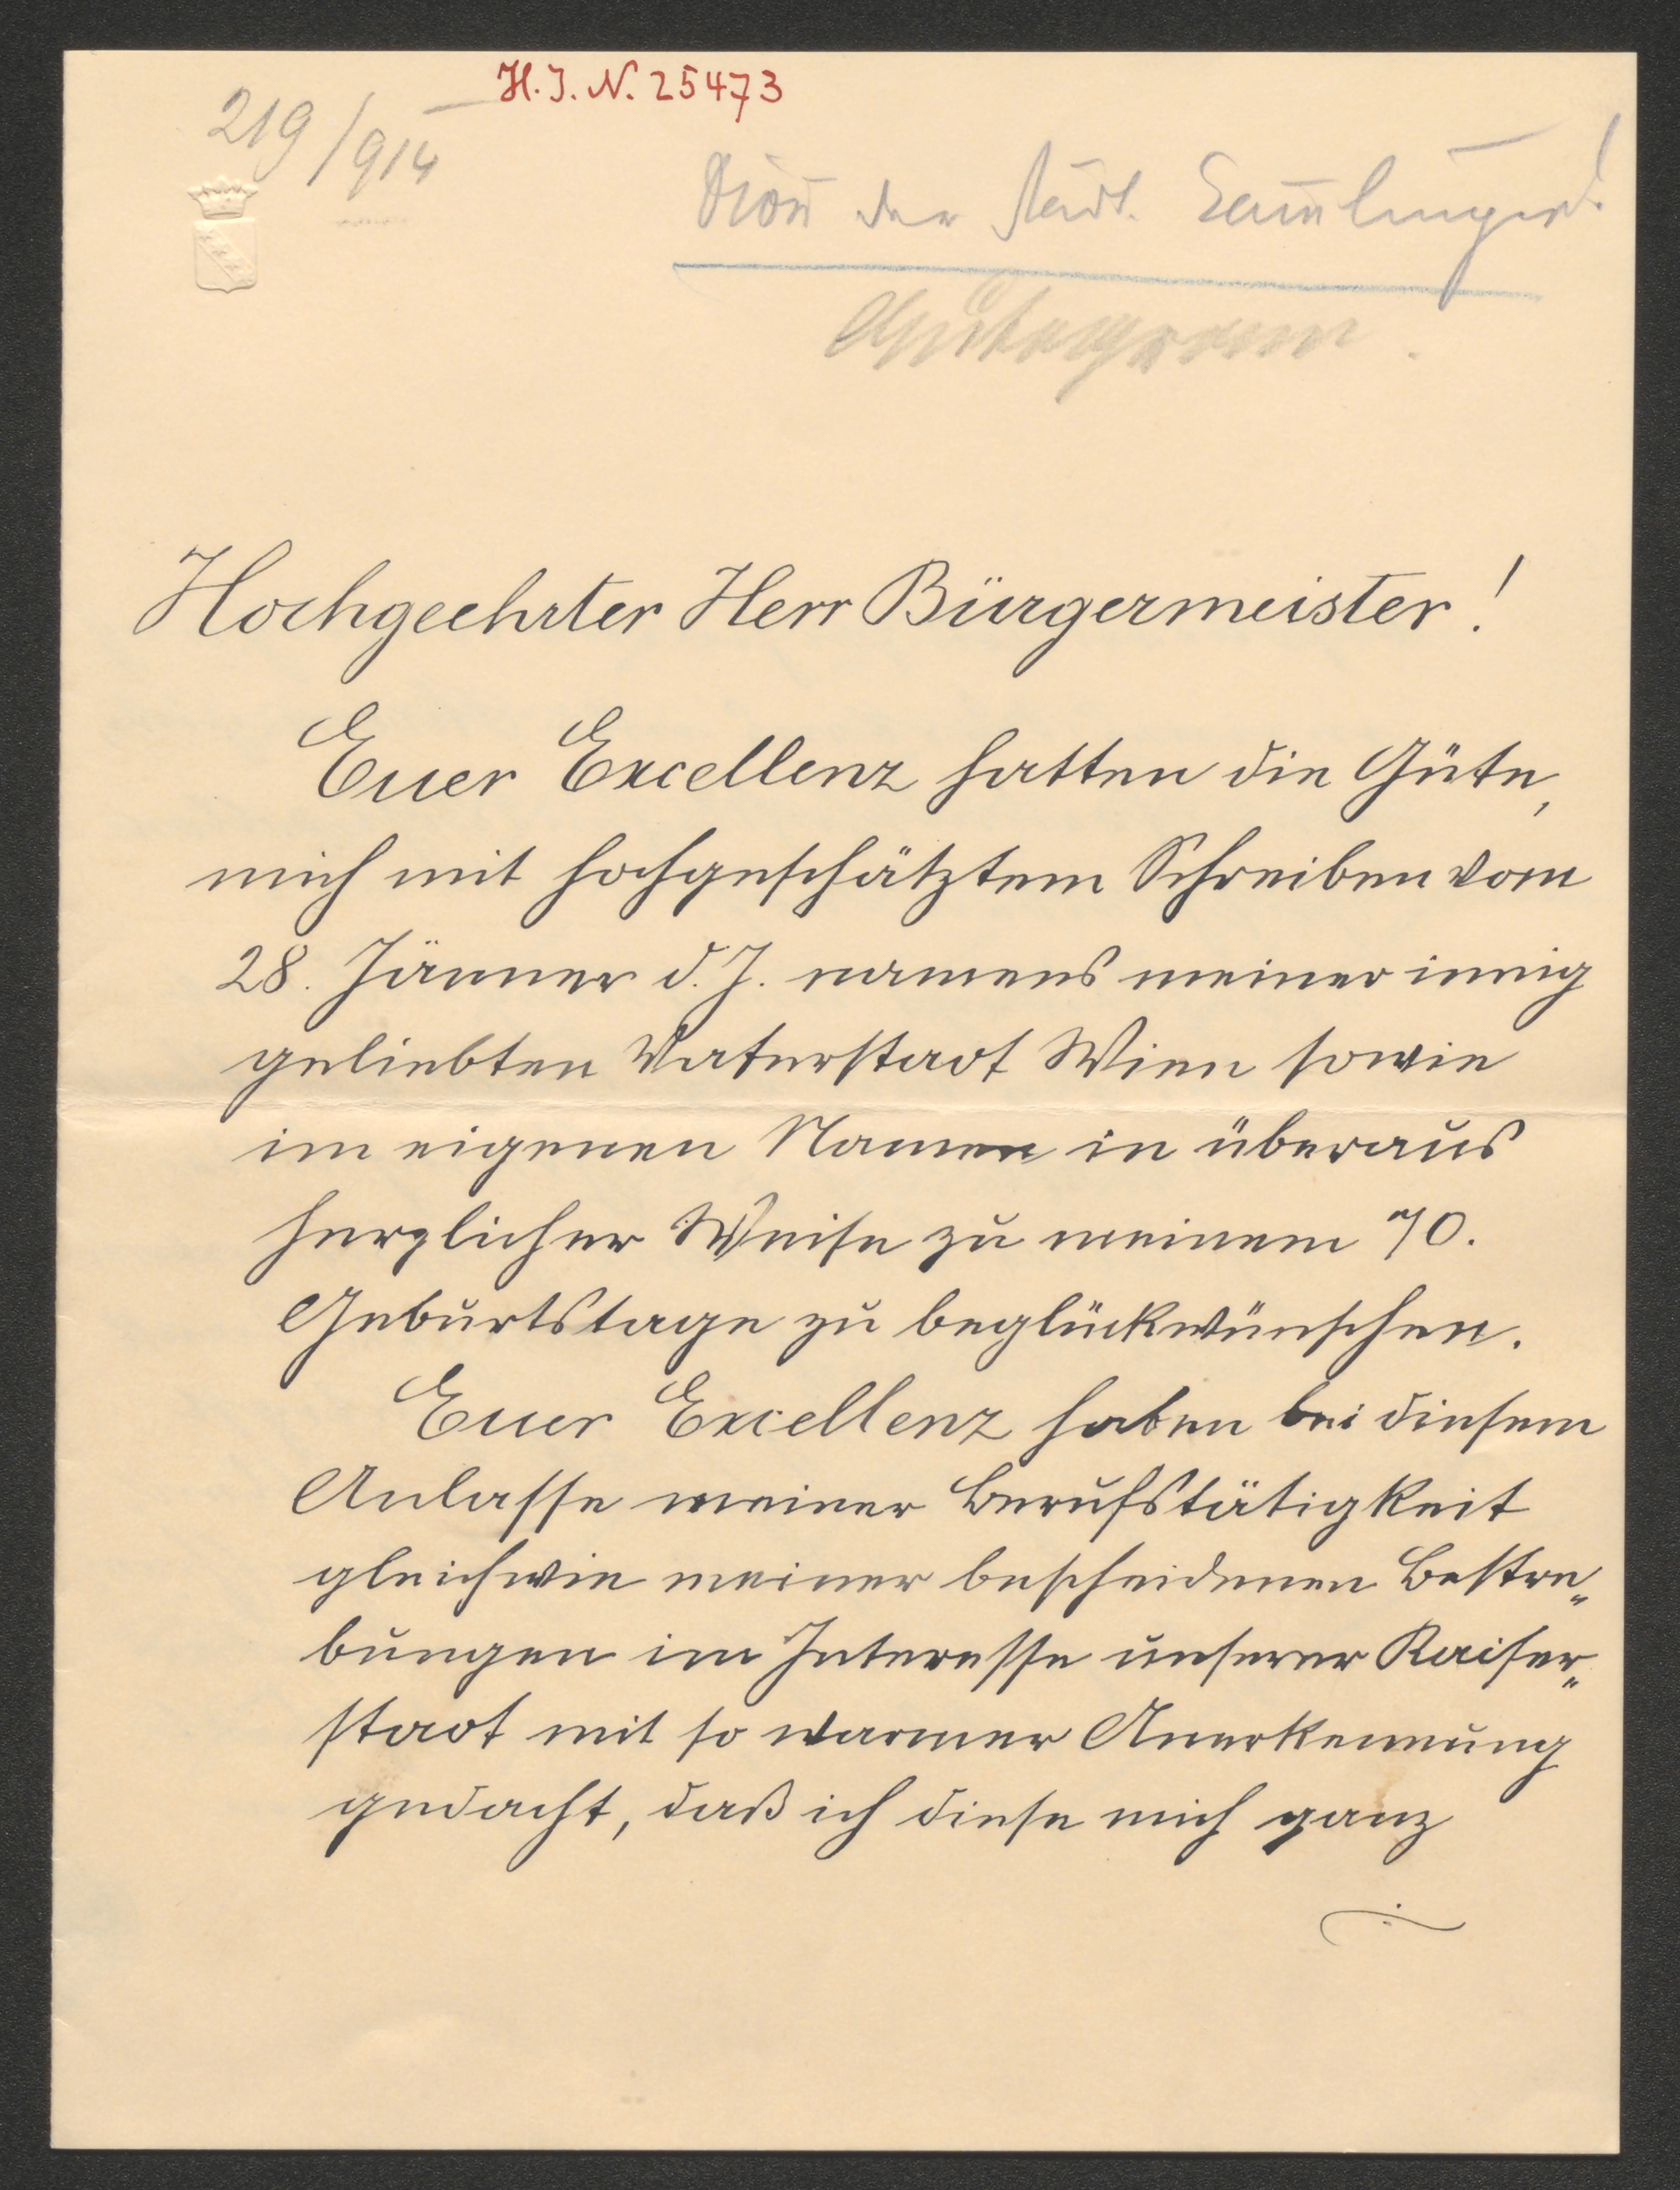 H.I.N. 25473
219/914
Dion der städt. Sammlungen!
Hochgeehrter Herr Bürgermeister!
Euer Excellenz hatten die Güte,
mich mit hochgeschätztem Schreiben vom
28. Jänner d. J. namens meiner innig
geliebten Vaterstadt Wien sowie
im eigenen Namen in überaus
herzlicher Weise zu meinem 70.
Geburtstage zu beglückwünschen.
Euer Excellenz haben bei diesem
Anlasse meiner Berufstätigkeit
gleichwie meiner bescheidenen Bestre„
bungen im Interesse unserer Kaiser„
stadt mit so warmer Anerkennung
gedacht, daß ich diese mich ganz